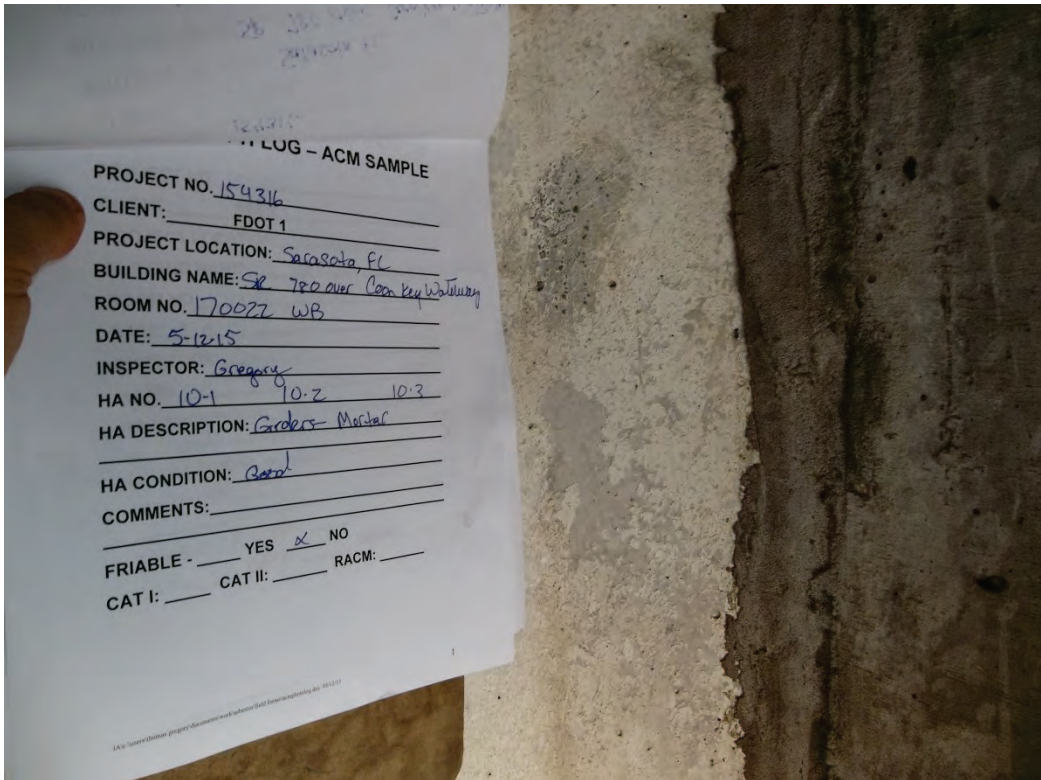 LOG – ACM SAMPLE
PROJECT NO. 154316
CLIENT: FDOT 1
PROJECT LOCATION: Sarasota, FL
BUILDING NAME: SR 780 over Coon Key Waterway
ROOM NO. 170022 WB
DATE: 5-12-15
INSPECTOR: Gregory
HA NO. 10-1 10-2 10-3
HA DESCRIPTION: Girders - Mortar
HA CONDITION: Good
COMMENTS:
FRIABLE - YES x NO
CAT I: CAT II: RACM:
1